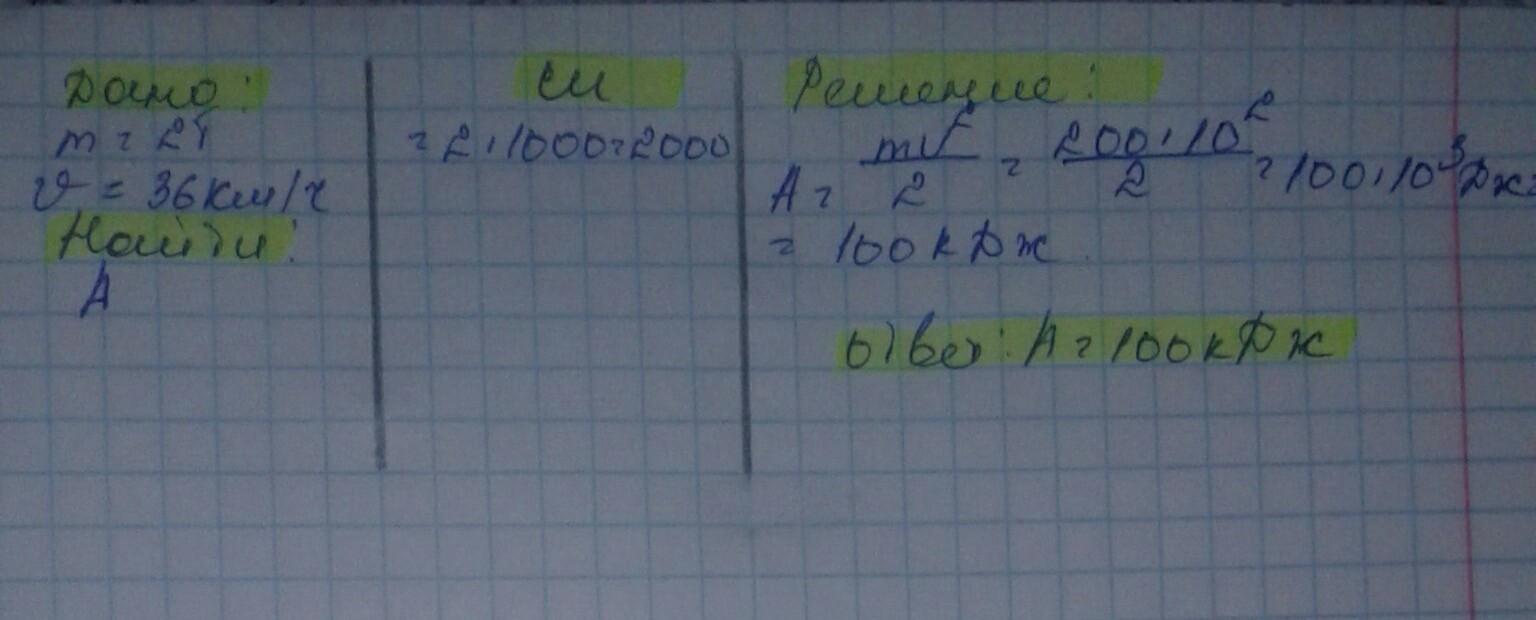 Дано:
m = 2т
υ = 36км/ч
Найти:
A
СИ
= 2·1000=2000
Решение:
A = mv²/2 = 200·10²/2 = 100·10³Дж=
= 100кДж
Ответ: A = 100кДж